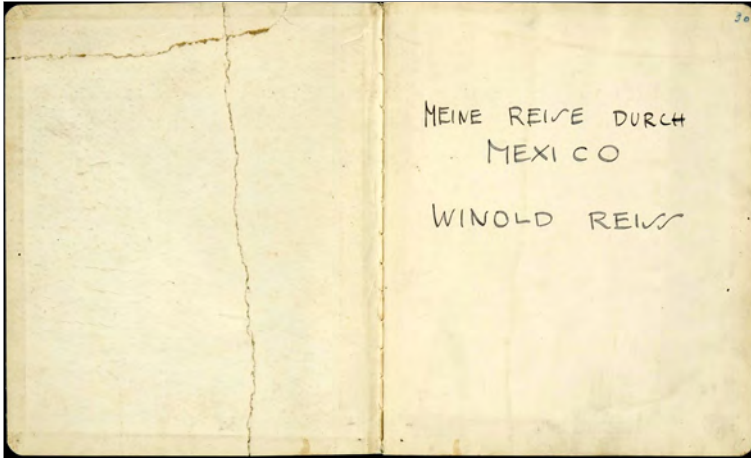 30
MEINE REISE DURCH
MEXICO
WINOLD REISS